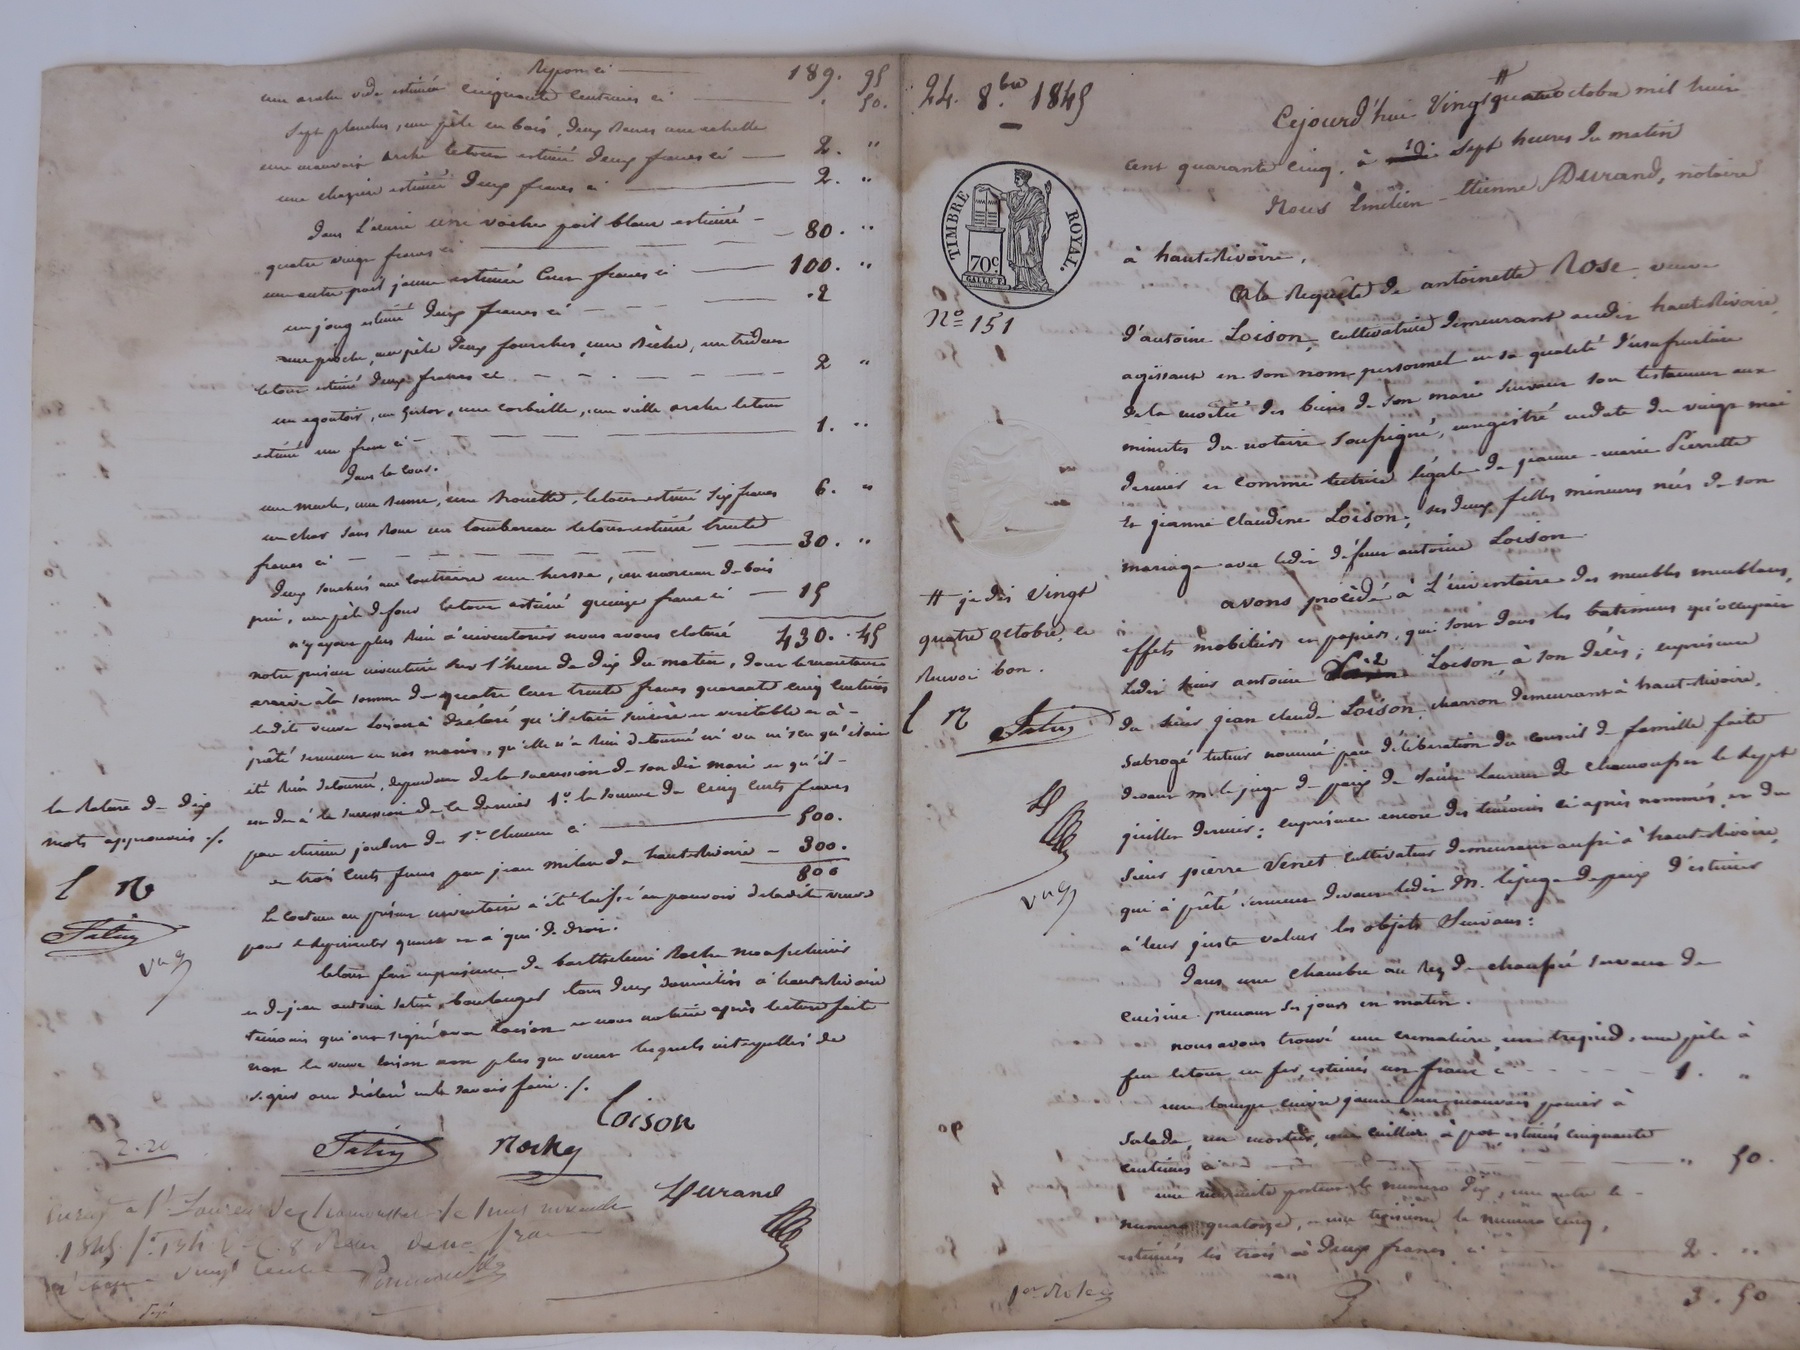 Report ci 189. 95
une arche vide estimée cinquante centimes ci . 50.
sept planches, une pèle en bois, deux bennes une échelle
une mauvaise arche letout estimé deux francs ci 2. "
une chezière estimée deux francs ci 2. "
Dans L'écurie une vache poil blanc estimée
quatre vingt francs ci 80. "
une autre poil jaune estimée Cent francs ci 100. "
un joug estimé deux francs ci .2
une pioche, une pèle deux fourches, une bèche, un trident
letout estimé deux francs ci 2 "
un egoutoir, une corbeille, une vieille arche letout
estimé un franc ci 1. "
Dans la cour.
une meule, une benne, une brouette, letout estimé six francs 6. "
un char sans roue un tombereau letout estimé trente
francs ci 30. "
deux une herse, un morceau de bois
pin, une pèle de four letout estimé quinze francs ci 15
n'y ayant plus rien à inventorier nous avons cloturé 430. 45
notre présent inventaire sur l'heure de dix du matin, dont le montant
arrive à la somme de quatre cent trente francs quarante cinq centimes
ladite veuve Loison a déclaré qu'il etait sincère et veritable et a
prêté serment en nos mains, qu'elle n'a rien detourné ni vu ni su qu'il ait
été rien detourné, dependant de la succession de son dit mari et qu'il
est dû à la succession de ce dernier 1º. la somme de cinq cents francs
par etienne joubert de St. Clément ci 500.
et trois cents francs par jean milan de hauterivoire 300.
800
Le contenu au présent inventaire a été laissé au pouvoir de ladite veuve
pour le représenter quand et à qui de droit.
letout fait en présence de barthelemi Roche
et de jean antoine fatin, boulanger tous deux domiciliés à hauterivoire
témoins qui ont signé avec Loison et nous notaire après lecture faite
non la veuve loison non plus que venet lesquels interpellés de
signer ont déclaré ne le savoir faire ./.
la rature de dix
mots approuvée ./.
L R
Fatin
V u g
Loison
Fatin Roche
Durand
2.20
1845
vingt centimes
24. 8.bre 1845
Cejourd'hui Vingt quatre octobre mil huit
cent quarante cinq, à sept heures du matin
Nous Emilien-Etienne Durand, notaire
TIMBRE ROYAL.
70c.
à hauterivoire,
Nº 151
A la Requête de antoinette Rose veuve
d'antoine Loison, cultivatrice demeurant audit hauterivoire,
agissant en son nom personnel en sa qualité d'usufruitière
de la moitié des biens de son mari suivant son testament aux
minutes du notaire soussigné, enregistré en date du vingt mai
dernier et comme tutrice légale de jeanne-marie Pierrette
et jeanne claudine Loison, ses deux filles mineures nées de son
mariage avec ledit défunt antoine Loison
avons procédé à L'inventaire des meubles meublans,
effets mobiliers et papiers, qui sont dans les batiments qu'occupait
ledit antoine Loison à son décès; en présence
du sieur jean claude Loison, charron demeurant à hauterivoire,
subrogé tuteur nommé par délibération du conseil de famille faite
devant m. le juge de paix de saint Laurent de chamousset le sept
juillet dernier; en présence encore des témoins ci après nommés, et du
sieur pierre Venet cultivateur demeurant aussi à hauterivoire,
qui a prêté serment devant ledit M. le juge de paix d'estimer
à leur juste valeur les objets suivans:
# je dis Vingt
quatre octobre, ce
Renvoi bon.
L R Fatin
D
V u g
Dans une chambre au rez de chaussé servant de
cuisine prenant ses jours en matin.
nous avons trouvé une cremalière, un trepied, une pèle à
feu letout en fer, estimés un franc ci 1. "
une lampe cuivre jaune un mauvais panier à
salade, un mortier, une cuillère à pot estimés cinquante
centimes ci " 50.
une marmite portant le numéro dix, une autre le
numéro quatorze, et une troisième le numéro cinq,
estimées les trois à deux francs ci 2. "
1er Role
3. 50